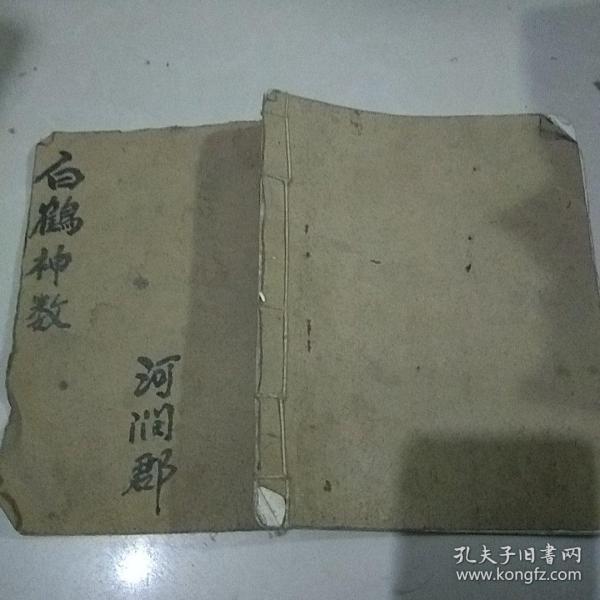 白鶴神数
河润郡
孔夫子旧书网
www.kongfz.com